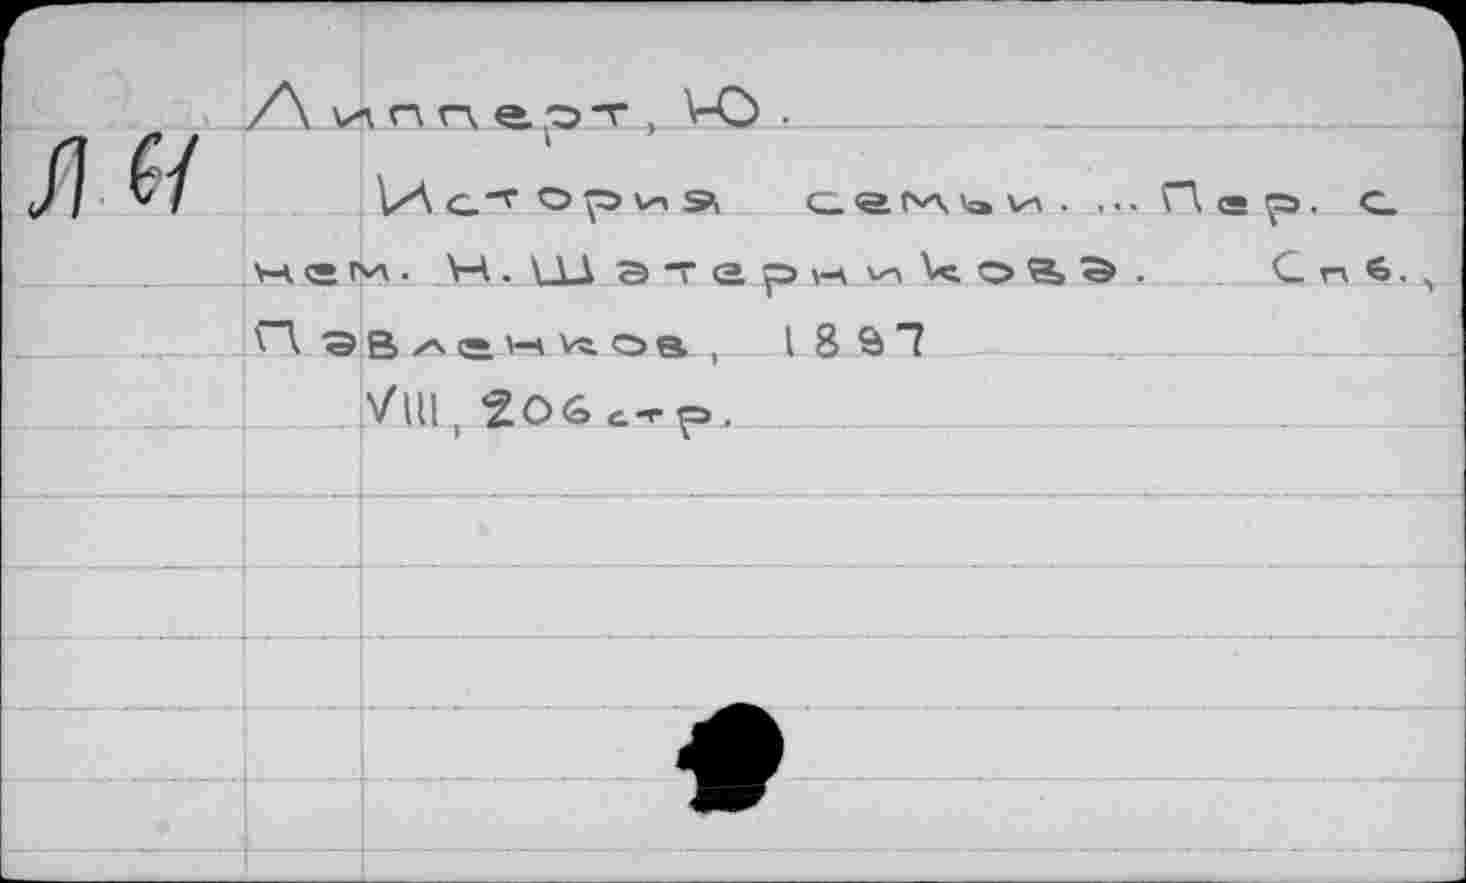 Липперт, Ю.
История семьи. ... Пер. с
нем. Н. Шатерникова. Спб.,
Павленков, 1897
VIII, 206 стр.